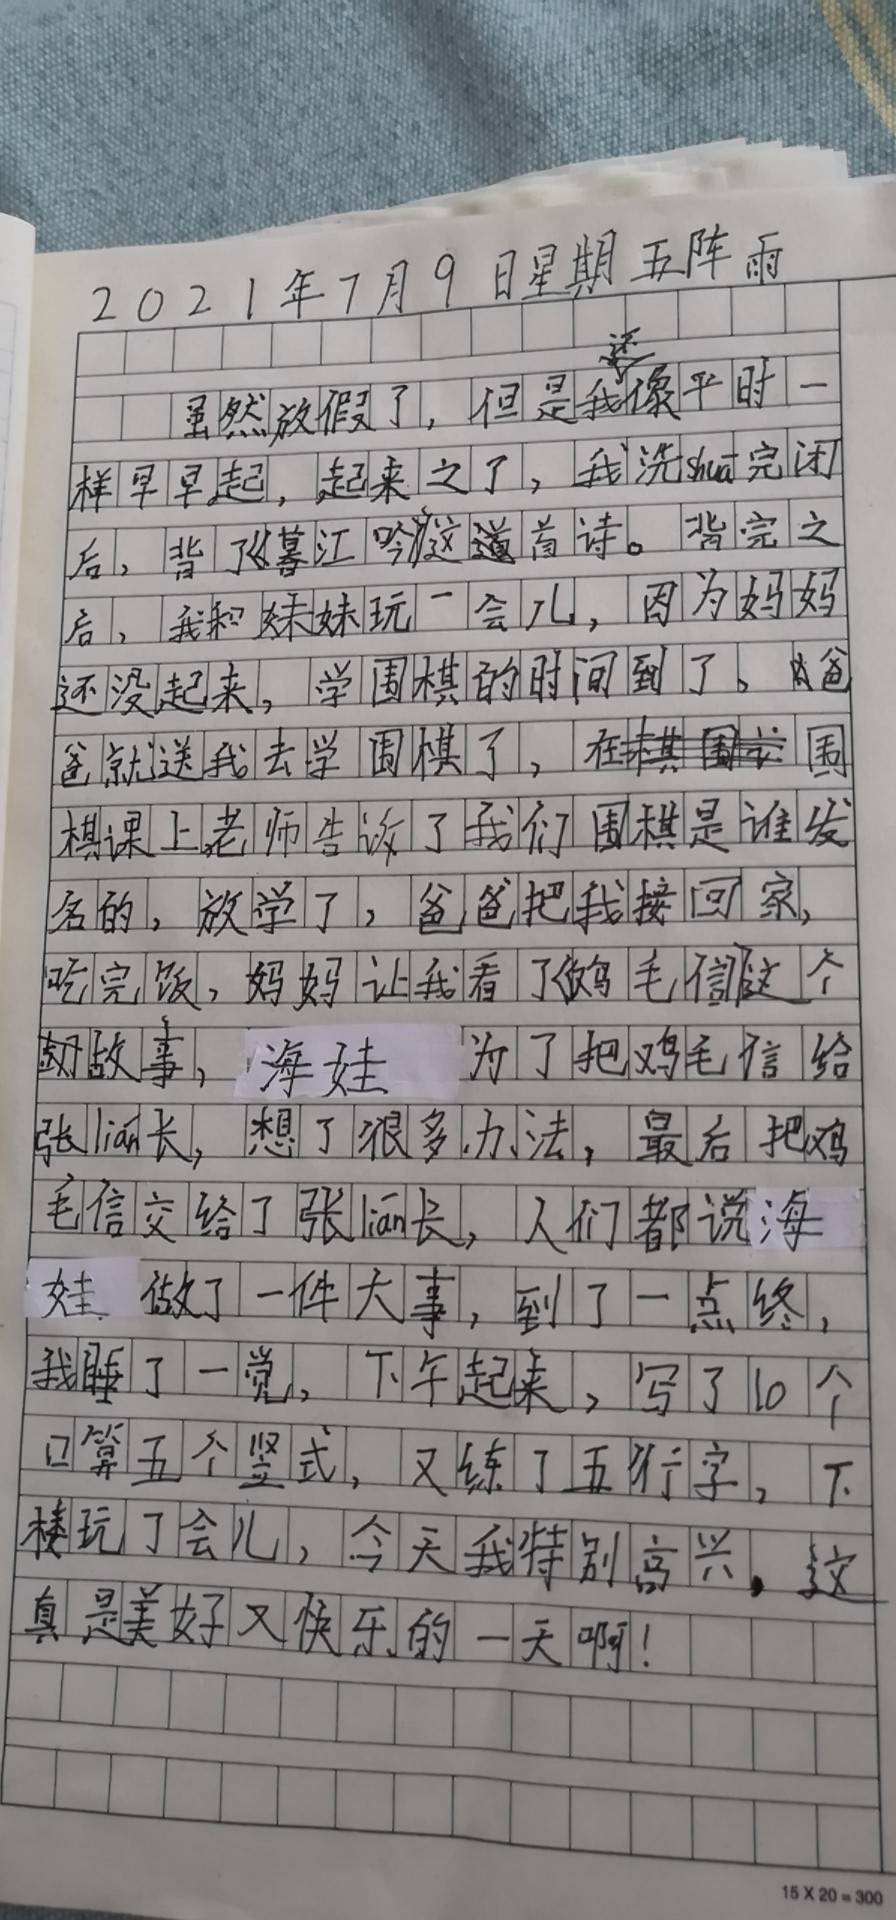 2021年7月9日星期五阵雨
还
虽然放假了，但是我像平时一
样早早起，起来之了，我洗shua完闭
后，背了《暮江吟》这道首诗。背完之
后，我和妹妹玩一会儿，因为妈妈
还没起来，学围棋的时间到了。爸
爸就送我去学围棋了，在围
棋课上老师告诉了我们围棋是谁发
名的，放学了，爸爸把我接回家，
吃完饭，妈妈让我看了《鸡毛信》这个
故事，海娃为了把鸡毛信给
张lián长，想了很多办法，最后把鸡
毛信交给了张lián长，人们都说海
娃做了一件大事，到了一点终，
我睡了一觉，下午起来，写了10个
口算五个竖式，又练了五行字，下
楼玩了会儿，今天我特别高兴。这
真是美好又快乐的一天啊！
15×20=300